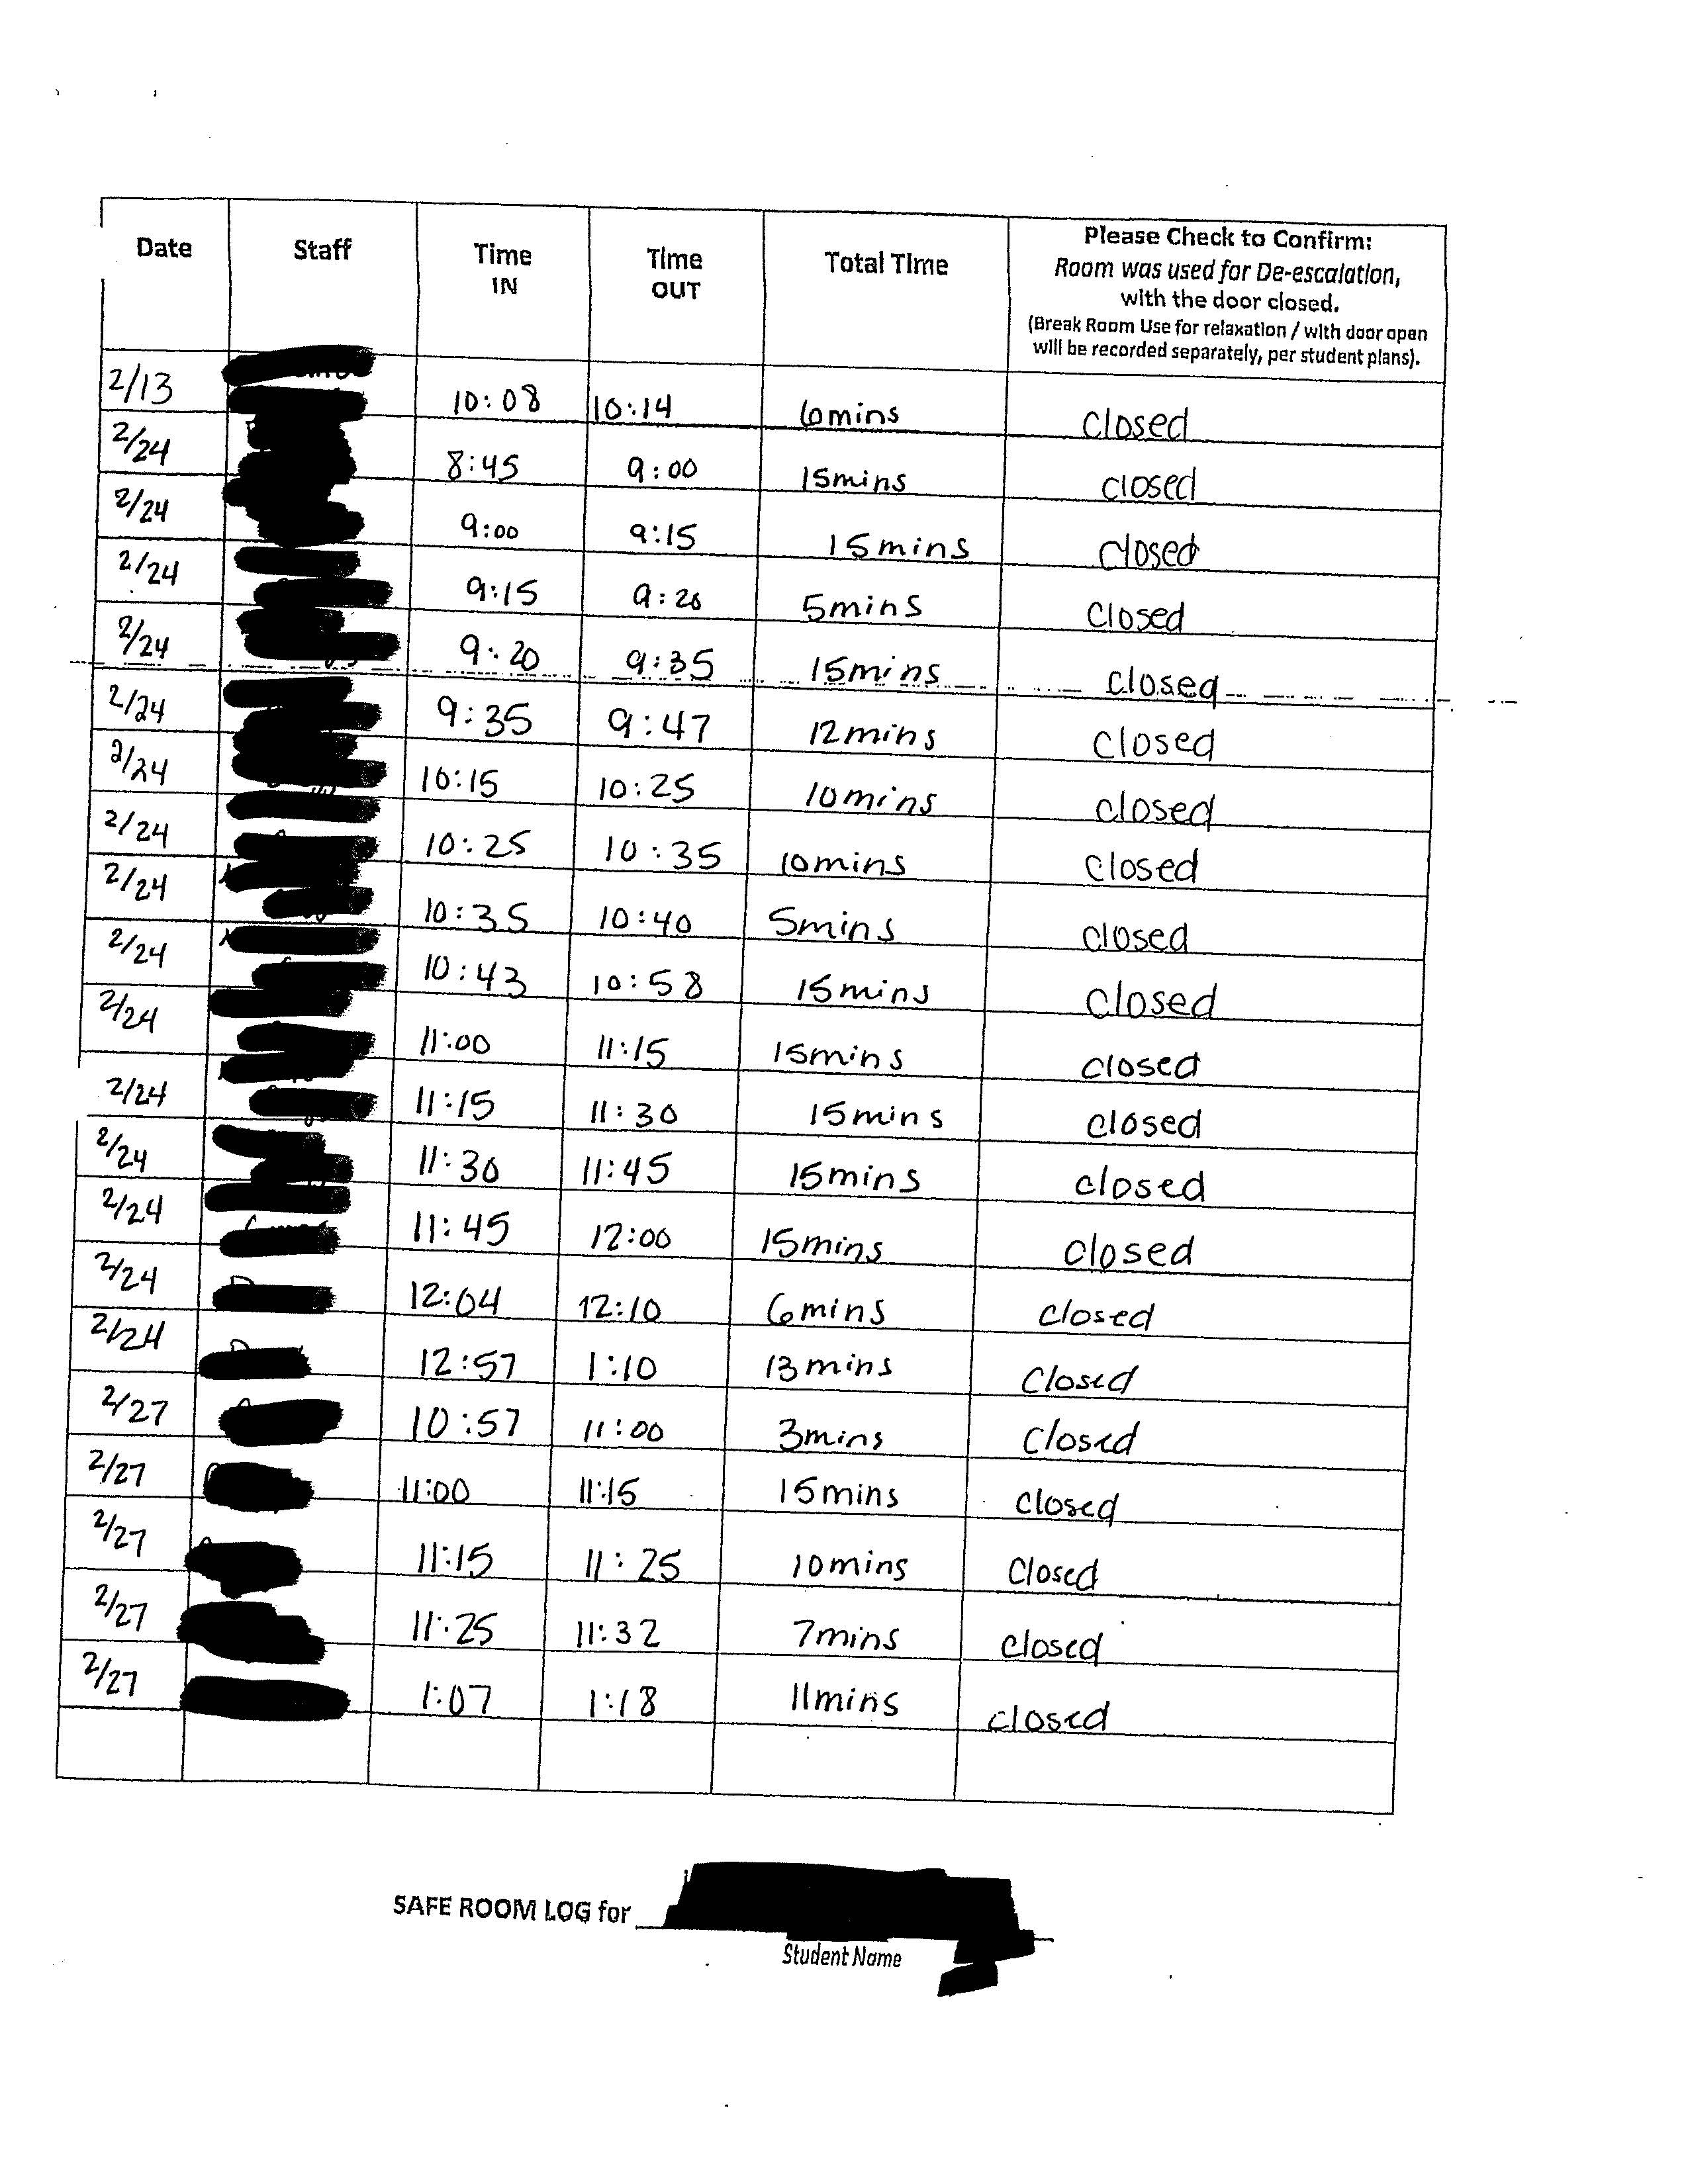 Date Staff Time IN Time OUT Total Time Please Check to Confirm:
Room was used for De-escalation,
with the door closed.
(Break Room Use for relaxation / with door open
will be recorded separately, per student plans).
2/13 10:08 10:14 6mins closed
2/24 8:45 9:00 15mins closed
2/24 9:00 9:15 15mins closed
2/24 9:15 9:20 5mins closed
2/24 9:20 9:35 15mins closed
2/24 9:35 9:47 12mins closed
2/24 10:15 10:25 10mins closed
2/24 10:25 10:35 10mins closed
2/24 10:35 10:40 5mins closed
2/24 10:43 10:58 15mins closed
2/24 11:00 11:15 15mins closed
2/24 11:15 11:30 15mins closed
2/24 11:30 11:45 15mins closed
2/24 11:45 12:00 15mins closed
2/24 12:04 12:10 6mins closed
2/24 12:57 1:10 13mins closed
2/27 10:57 11:00 3mins closed
2/27 11:00 11:15 15mins closed
2/27 11:15 11:25 10mins closed
2/27 11:25 11:32 7mins closed
2/27 1:07 1:18 11mins closed
SAFE ROOM LOG for
Student Name